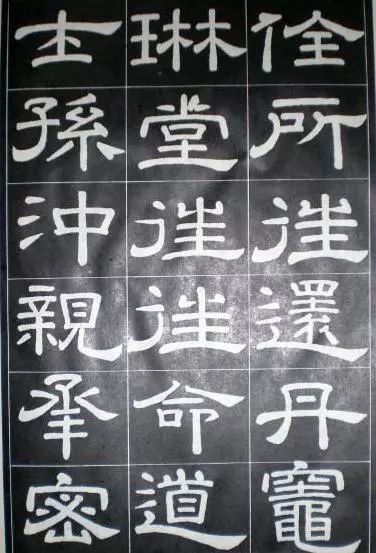 佺所往還丹竈
琳堂往往命道
士孫沖親承密